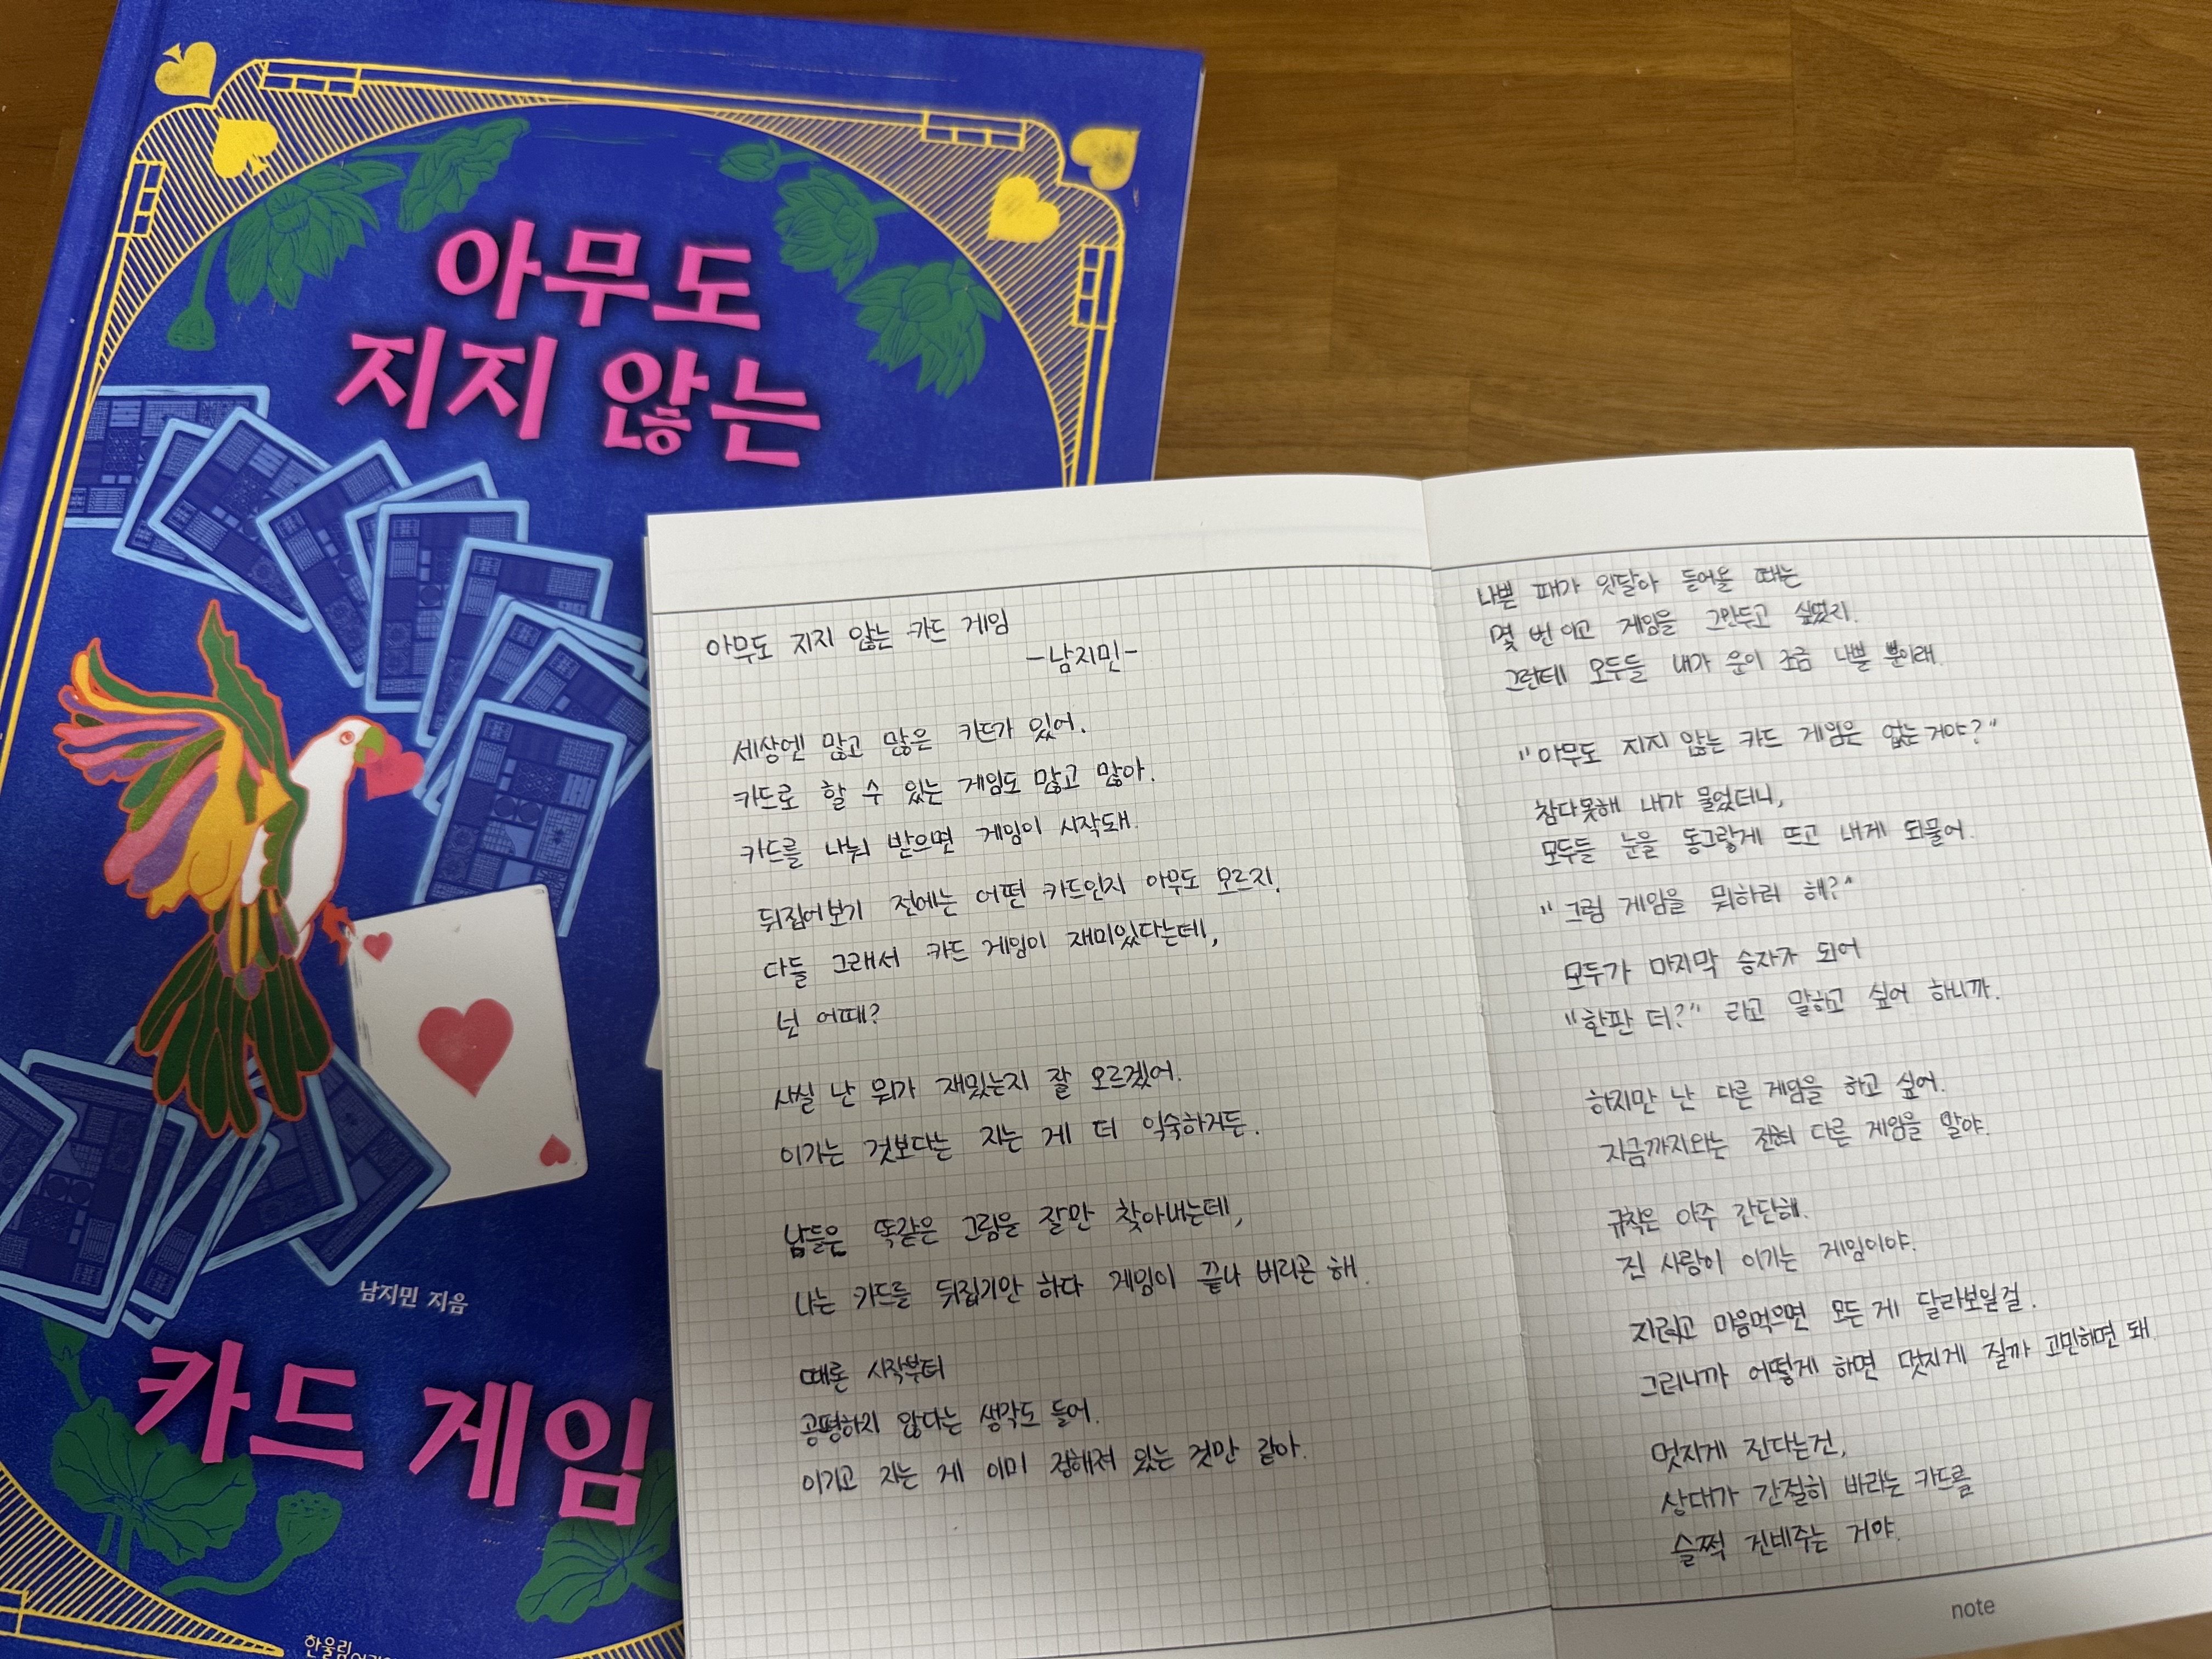 아무도
지지 않는
남지민 지음
카드 게임
한울림
아무도 지지 않는 카드 게임
-남지민-
세상엔 많고 많은 카드가 있어.
카드로 할 수 있는 게임도 많고 많아.
카드를 나눠 받으면 게임이 시작돼.
뒤집어보기 전에는 어떤 카드인지 아무도 모르지.
다들 그래서 카드 게임이 재미있다는데,
넌 어때?
사실 난 뭐가 재밌는지 잘 모르겠어.
이기는 것보다는 지는 게 더 익숙하거든.
남들은 똑같은 그림을 잘만 찾아내는데,
나는 카드를 뒤집기만 하다 게임이 끝나 버리곤 해.
때론 시작부터
공평하지 않다는 생각도 들어.
이기고 지는 게 이미 정해져 있는 것만 같아.
나쁜 패가 잇달아 들어올 때는
몇 번이고 게임을 그만두고 싶었지.
그런데 모두들 내가 운이 조금 나쁠 뿐이래.
"아무도 지지 않는 카드 게임은 없는거야?"
참다못해 내가 물었더니,
모두들 눈을 동그랗게 뜨고 내게 되물어.
"그럼 게임을 뭐하러 해?"
모두가 마지막 승자가 되어
"한판 더?" 라고 말하고 싶어 하니까.
하지만 난 다른 게임을 하고 싶어.
지금까지와는 전혀 다른 게임을 말야.
규칙은 아주 간단해.
진 사람이 이기는 게임이야.
지려고 마음먹으면 모든 게 달라보일걸.
그러니까 어떻게 하면 멋지게 질까 고민하면 돼.
멋지게 진다는건,
상대가 간절히 바라는 카드를
슬쩍 건네주는 거야.
note